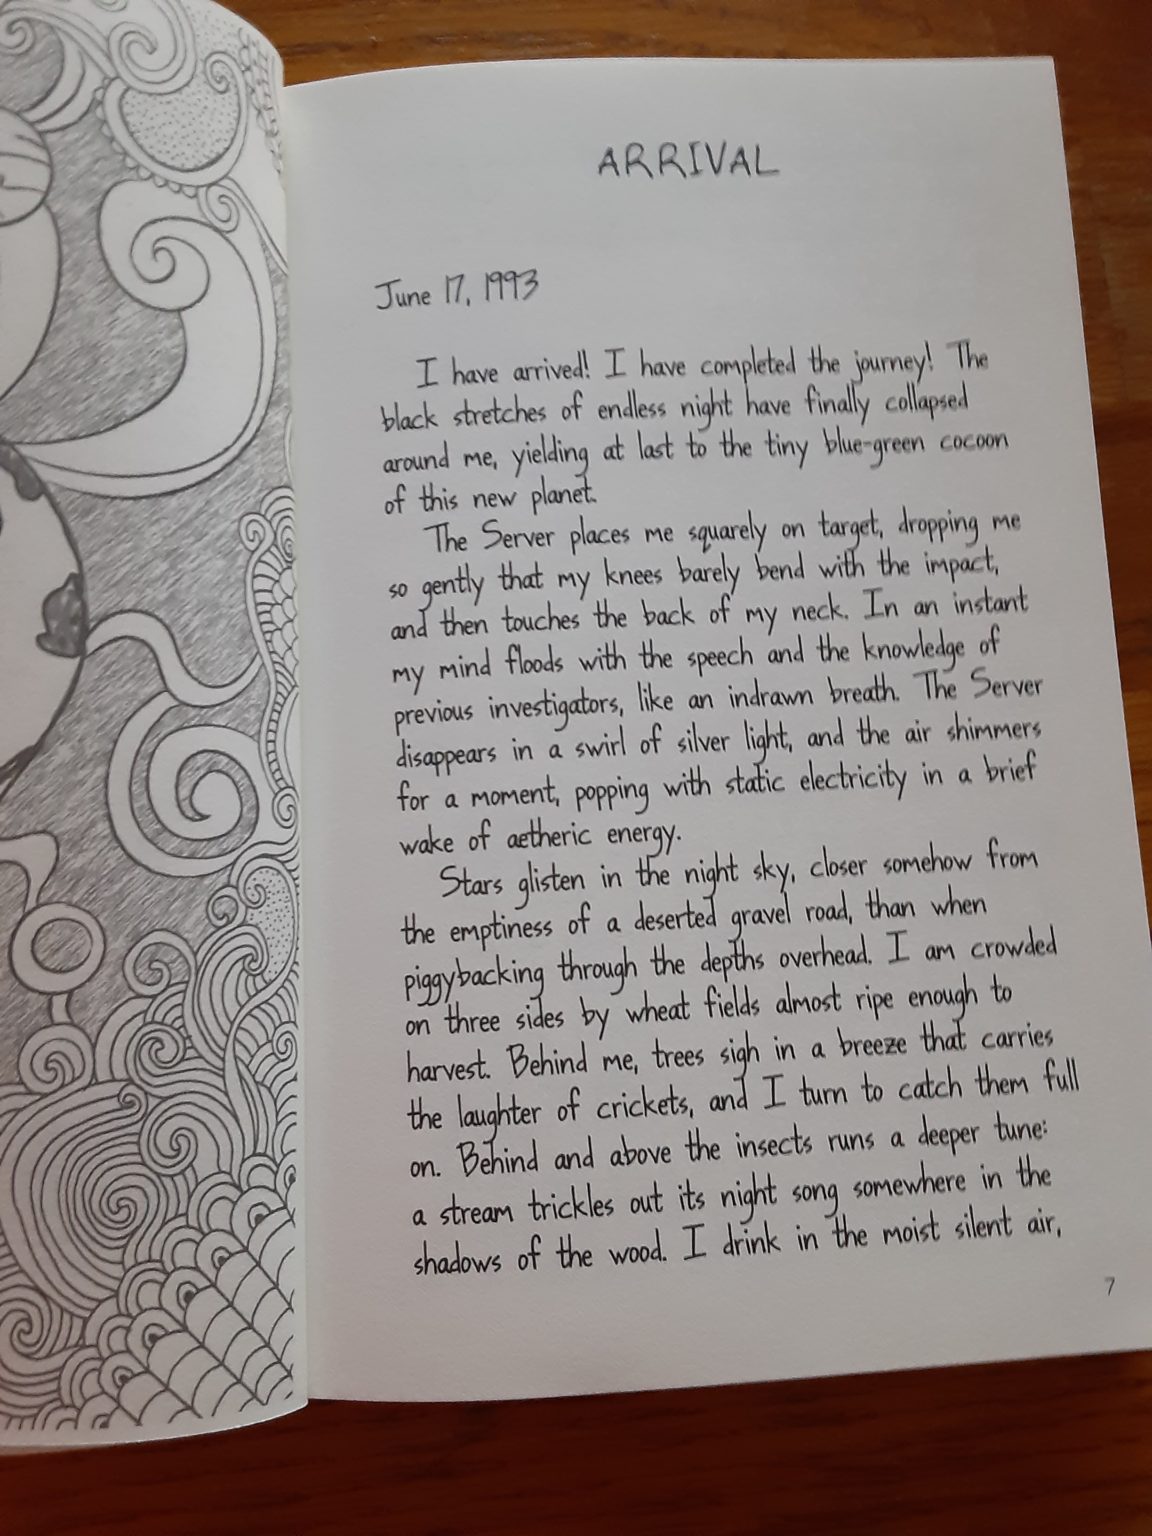 ARRIVAL
June 17, 1993
I have arrived! I have completed the journey! The
black stretches of endless night have finally collapsed
around me, yielding at last to the tiny blue-green cocoon
of this new planet.
The Server places me squarely on target, dropping me
so gently that my knees barely bend with the impact,
and then touches the back of my neck. In an instant
my mind floods with the speech and the knowledge of
previous investigators, like an indrawn breath. The Server
disappears in a swirl of silver light, and the air shimmers
for a moment, popping with static electricity in a brief
wake of aetheric energy.
Stars glisten in the night sky, closer somehow from
the emptiness of a deserted gravel road, than when
piggybacking through the depths overhead. I am crowded
on three sides by wheat fields almost ripe enough to
harvest. Behind me, trees sigh in a breeze that carries
the laughter of crickets, and I turn to catch them full
on. Behind and above the insects runs a deeper tune:
a stream trickles out its night song somewhere in the
shadows of the wood. I drink in the moist silent air,
7